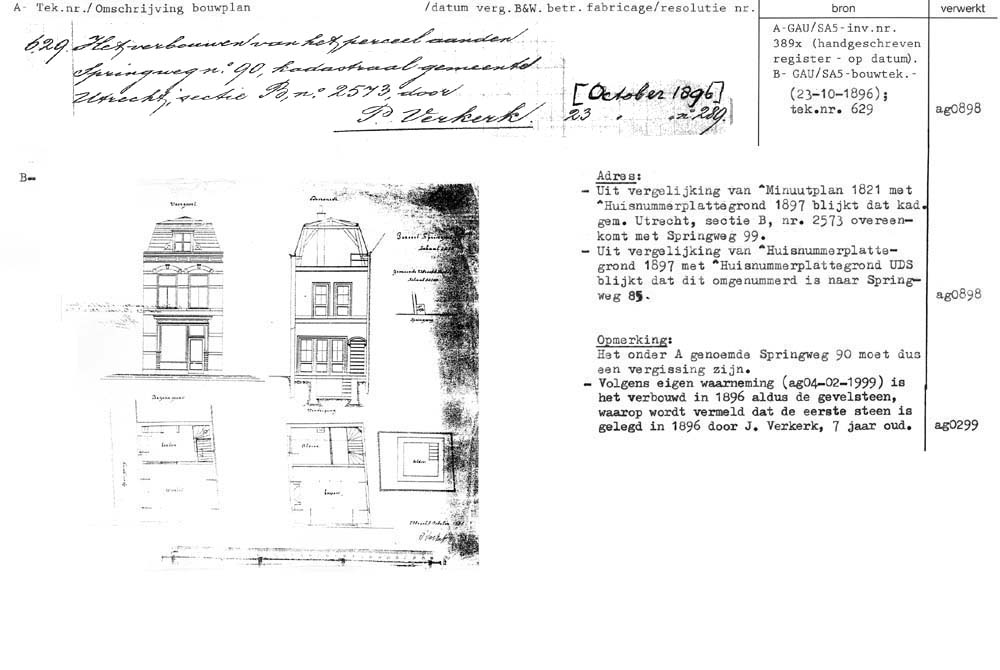 A- Tek.nr./Omschrijving bouwplan /datum verg.B&W. betr. fabricage/resolutie nr. bron verwerkt
629. Het verbouwen van het perceel aan den
Springweg n.º 90, kadastraal gemeente
Utrecht, sectie B, n.º 2573, door
P. Verkerk.
[October 1896]
23 " " nº 289.
A-GAU/SA5-inv.nr.
389x (handgeschreven
register - op datum).
B- GAU/SA5-bouwtek.-
(23-10-1896);
tek.nr. 629
ag0898
B-
Voorgevel
Doorsnede
Adres:
- Uit vergelijking van ^Minuutplan 1821 met
^Huisnummerplattegrond 1897 blijkt dat kad.
gem. Utrecht, sectie B, nr. 2573 overeen-
komt met Springweg 99.
- Uit vergelijking van ^Huisnummerplatte-
grond 1897 met ^Huisnummerplattegrond UDS
blijkt dat dit omgenummerd is naar Spring-
weg 85.
ag0898
Opmerking:
Het onder A genoemde Springweg 90 moet dus
een vergissing zijn.
- Volgens eigen waarneming (ag04-02-1999) is
het verbouwd in 1896 aldus de gevelsteen,
waarop wordt vermeld dat de eerste steen is
gelegd in 1896 door J. Verkerk, 7 jaar oud.
ag0299